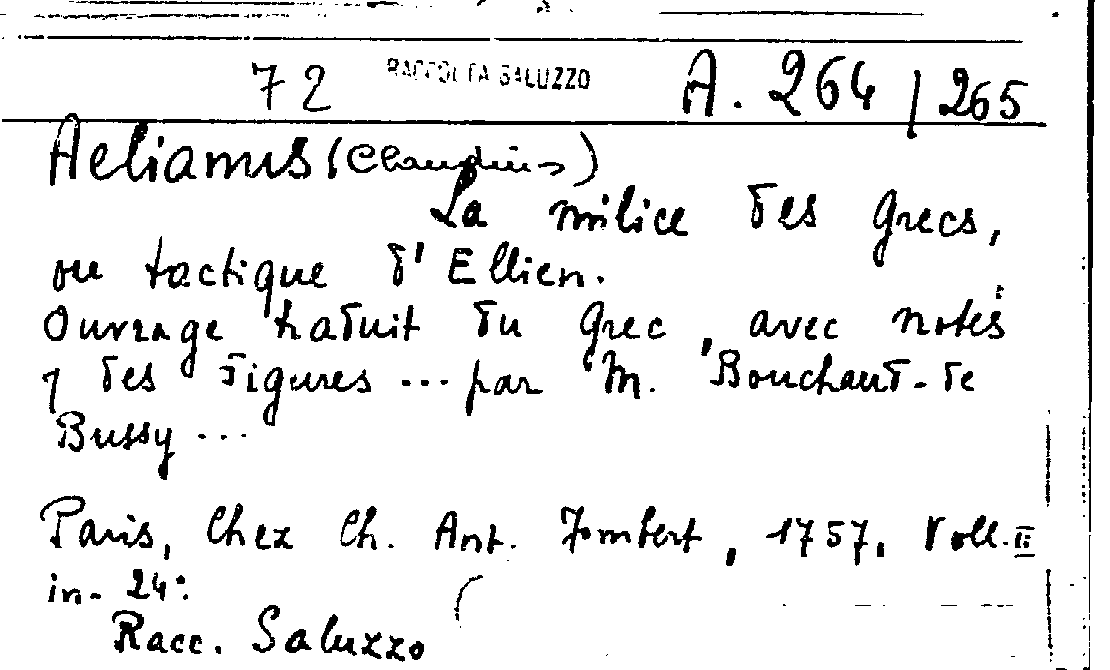 72 RACCOLTA SALUZZO A. 264/265
Aelianus (Claudius)
La milice des Grecs,
ou tactique d'Ellien.
Ouvrage traduit du Grec, avec notes
7 des figures ... par M. Bouchaud-de
Bussy ...
Paris, Chez Ch. Ant. Jombert, 1757. Voll. II
in-24:
Racc. Saluzzo